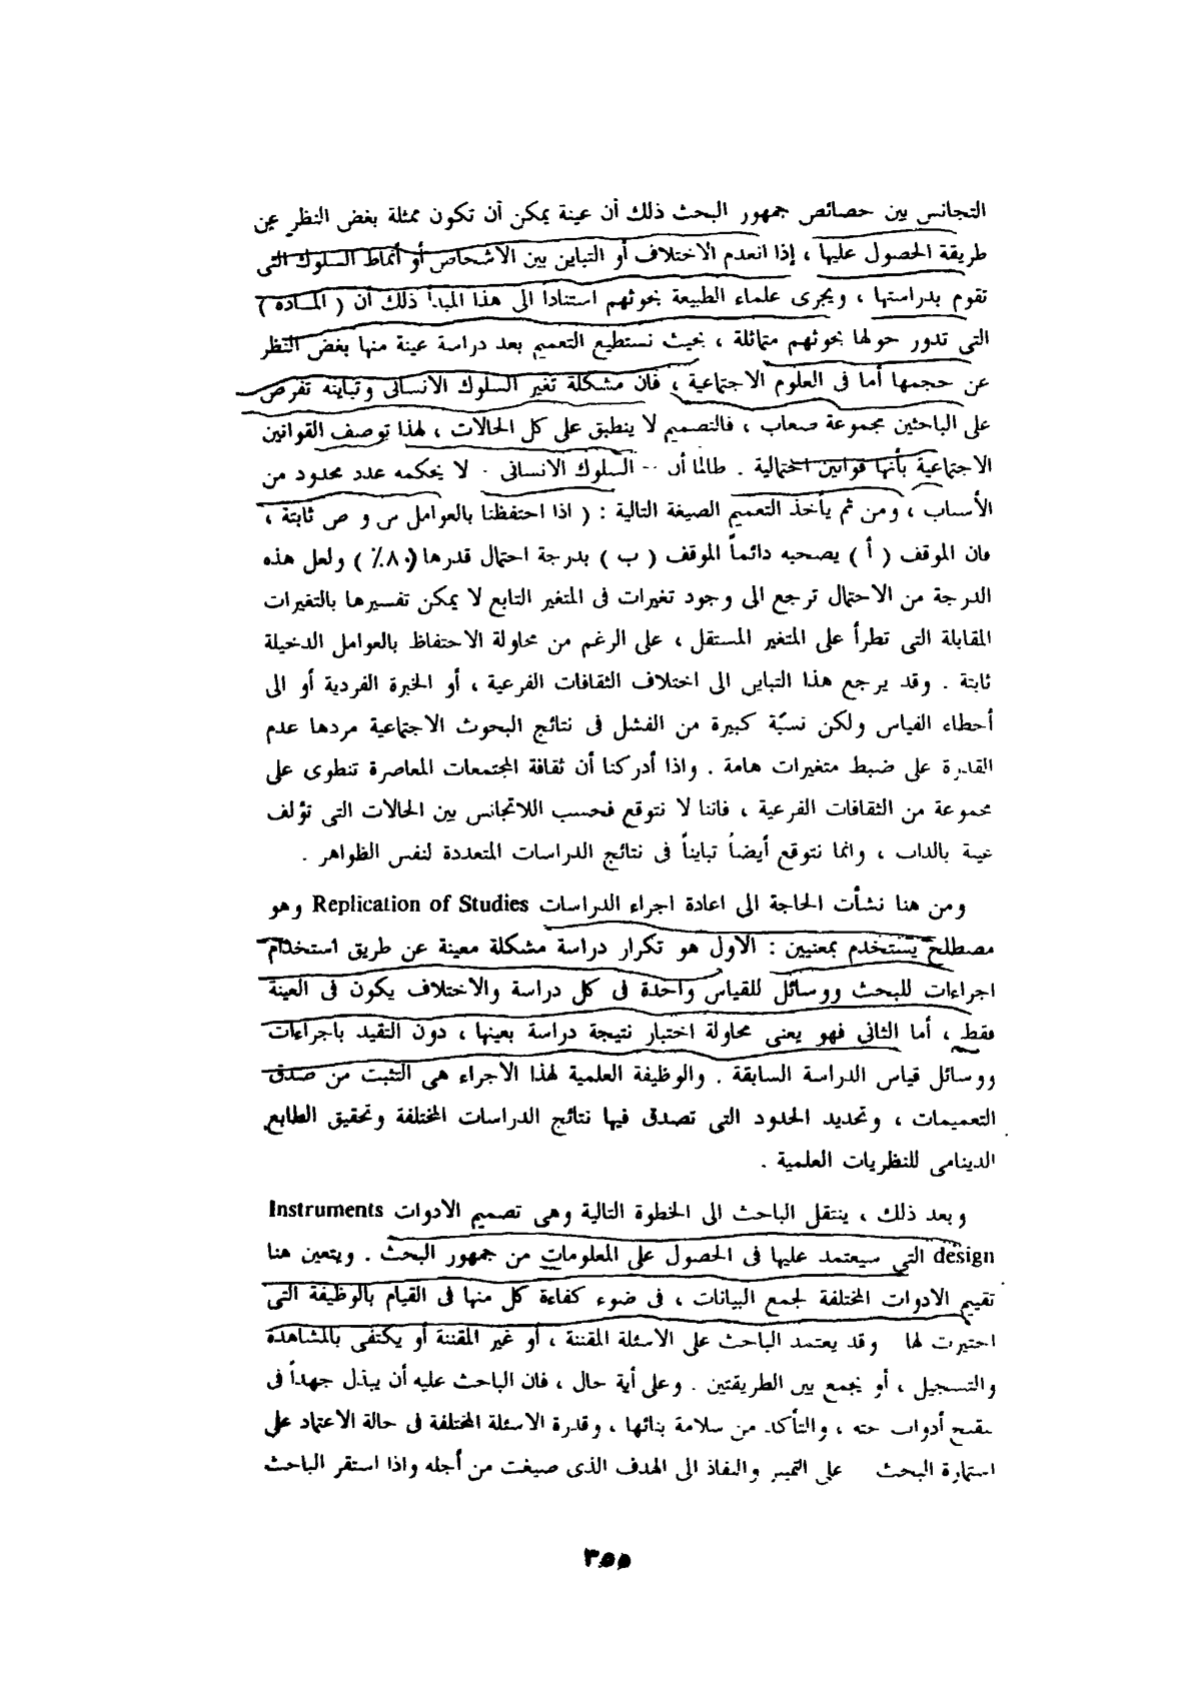 التجانس بين خصائص جمهور البحث ذلك أن عينة يمكن أن تكون ممثلة بغض النظر عن
طريقة الحصول عليها ، إذا انعدم الاختلاف أو التباين بين الأشخاص أو أنماط السلوك التى
تقوم بدراستها ، ويجرى علماء الطبيعة بحوثهم استناداً الى هذا المبدأ ذلك أن ( المادة )
التى تدور حولها بحوثهم متماثلة ، بحيث نستطيع التعميم بعد دراسة عينة منها بغض النظر
عن حجمها أما فى العلوم الاجتماعية ، فان مشكلة تغير السلوك الانسانى وتباينه تفرض
على الباحثين مجموعة صعاب ، فالتصميم لا ينطبق على كل الحالات ، لهذا توصف القوانين
الاجتماعية بأنها قوانين احتمالية . طالما أن -- السلوك الانسانى - لا يحكمه عدد محدود من
الأسباب ، ومن ثم يأخذ التعميم الصيغة التالية : ( اذا احتفظنا بالعوامل س و ص ثابتة ،
فان الموقف ( أ ) يصحبه دائماً الموقف ( ب ) بدرجة احتمال قدرها (٨٠٪ ) ولعل هذه
الدرجة من الاحتمال ترجع الى وجود تغيرات فى المتغير التابع لا يمكن تفسيرها بالتغيرات
المقابلة التى تطرأ على المتغير المستقل ، على الرغم من محاولة الاحتفاظ بالعوامل الدخيلة
ثابتة . وقد يرجع هذا التباين الى اختلاف الثقافات الفرعية ، أو الخبرة الفردية أو الى
أخطاء القياس ولكن نسبة كبيرة من الفشل فى نتائج البحوث الاجتماعية مردها عدم
القدرة على ضبط متغيرات هامة . واذا أدركنا أن ثقافة المجتمعات المعاصرة تنطوى على
مجموعة من الثقافات الفرعية ، فاننا لا نتوقع فحسب اللاتجانس بين الحالات التى تؤلف
عينة بالذات ، وانما نتوقع أيضاً تبايناً فى نتائج الدراسات المتعددة لنفس الظواهر .
ومن هنا نشأت الحاجة الى اعادة اجراء الدراسات Replication of Studies وهو
مصطلح يستخدم بمعنيين : الأول هو تكرار دراسة مشكلة معينة عن طريق استخدام
اجراءات للبحث ووسائل للقياس واحدة فى كل دراسة والاختلاف يكون فى العينة
فقط ، أما الثانى فهو يعنى محاولة اختبار نتيجة دراسة بعينها ، دون التقيد باجراءات
ووسائل قياس الدراسة السابقة . والوظيفة العلمية لهذا الاجراء هى التثبت من صدق
التعميمات ، وتحديد الحدود التى تصدق فيها نتائج الدراسات المختلفة وتحقيق الطابع
الدينامى للنظريات العلمية .
وبعد ذلك ، ينتقل الباحث الى الخطوة التالية وهى تصميم الادوات Instruments
design التي سيعتمد عليها فى الحصول على المعلومات من جمهور البحث . ويتعين هنا
تقييم الادوات المختلفة لجمع البيانات ، فى ضوء كفاءة كل منها فى القيام بالوظيفة التى
اختيرت لها وقد يعتمد الباحث على الاسئلة المقننة ، أو غير المقننة أو يكتفى بالمشاهدة
والتسجيل ، أو يجمع بين الطريقتين . وعلى أية حال ، فان الباحث عليه أن يبذل جهداً فى
أدوات ، والتأكد من سلامة بنائها ، وقدرة الاسئلة المختلفة فى حالة الاعتماد على
استمارة البحث على التمييز والنفاذ الى الهدف الذى صيغت من أجله واذا استقر الباحث
٣٥٥